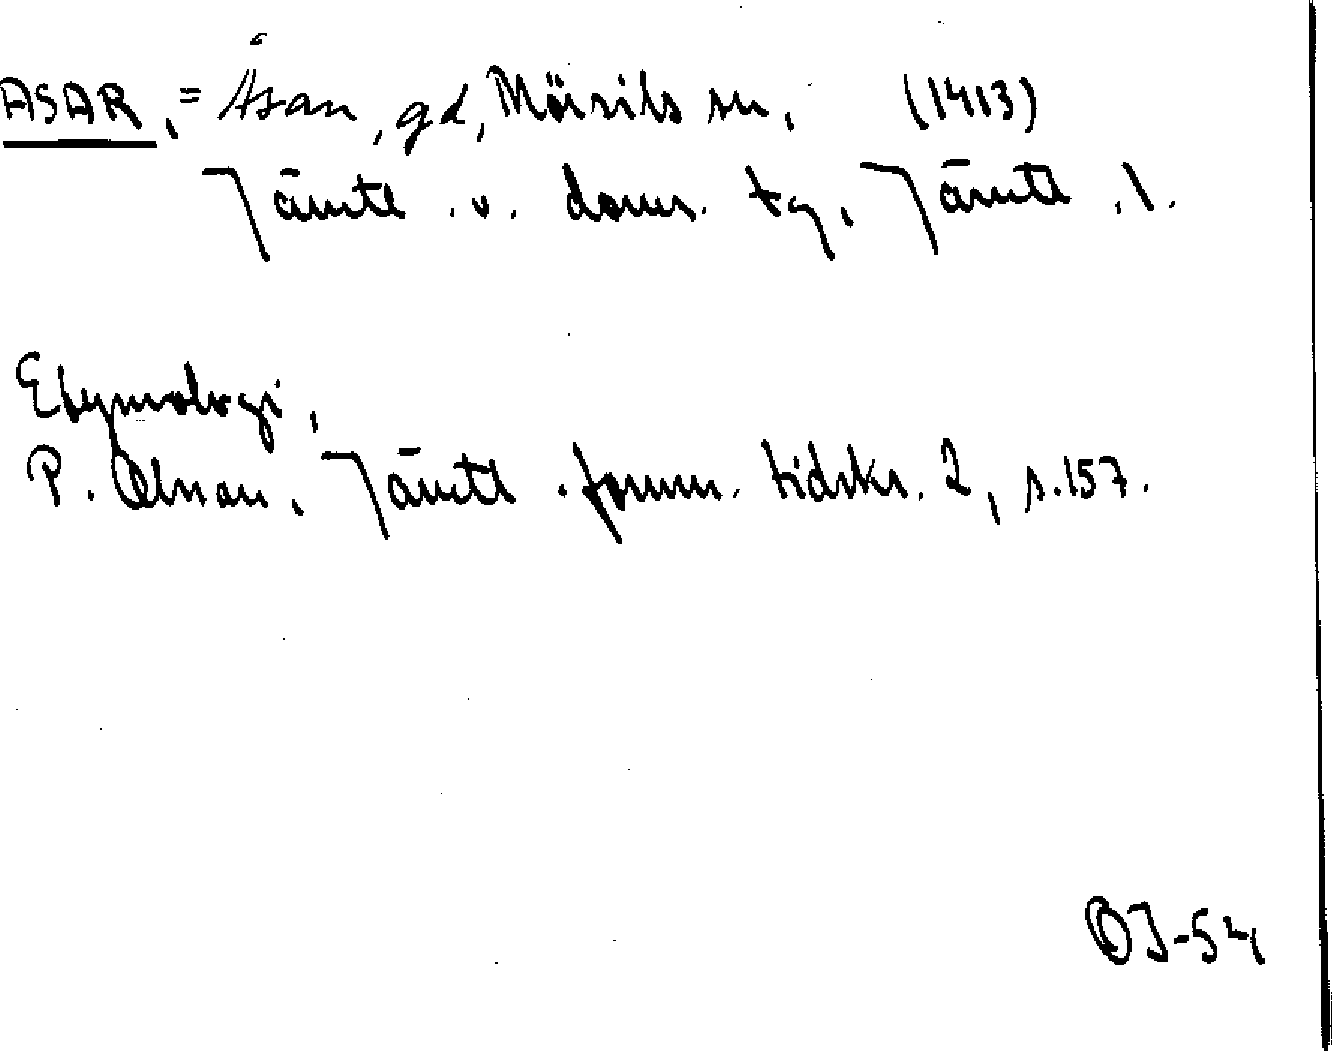 ASAR, = Åsan, gd, Mörsils sn, (1413)
Jämtl. v. doms. tg, Jämtl. l.
Etymologi,
P. Olsson, Jämtl. fornm. tidskr. 2, s. 157.
OJ-54